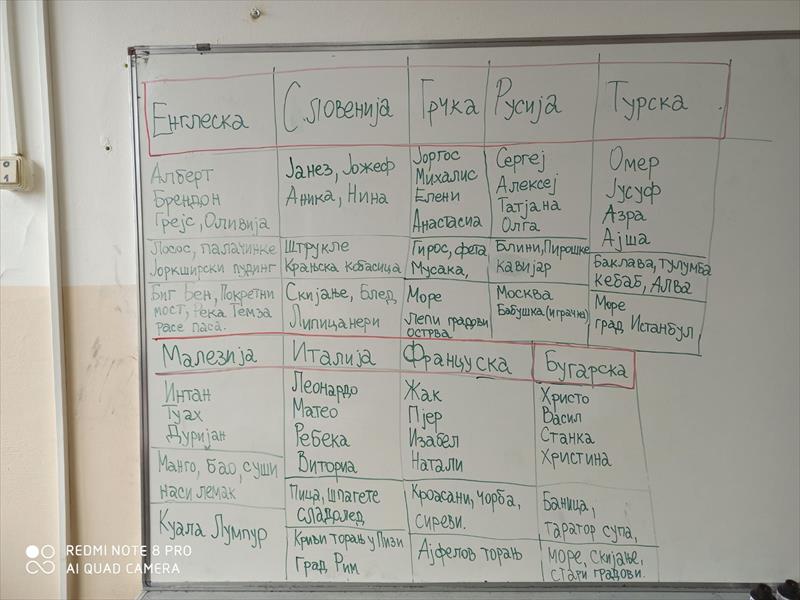 Енглеска
Алберт
Брендон
Грејс, Оливија
Лосос, палачинке
Јоркширски пудинг
Биг Бен, Покретни
мост, Река Темза
расе паса.
Словенија
Јанез, Јожеф
Аника, Нина
Штрукле
Крањска кобасица
Скијање, Блед
Липицанери
Грчка
Јоргос
Михалис
Елени
Анастасиа
Гирос, фета
Мусака,
Море
Лепи градови
острва
Русија
Сергеј
Алексеј
Татјана
Олга
Блини, Пирошке
кавијар
Москва
Бабушка (играчка)
Турска
Омер
Јусуф
Азра
Ајша
Баклава, тулумба
кебаб, Алва
Море
град Истанбул
Малезија
Интан
Туах
Дуријан
Манго, бао, суши
наси лемак
Куала Лумпур
Италија
Леонардо
Матео
Ребека
Виториа
Пица, шпагете
сладолед
Криви торањ у Пизи
Град Рим
Француска
Жак
Пјер
Изабел
Натали
Кроасани, чорба,
сиреви.
Ајфелов торањ
Бугарска
Христо
Васил
Станка
Христина
Баница,
таратор супа,
море, скијање,
стари градови.
REDMI NOTE 8 PRO
AI QUAD CAMERA